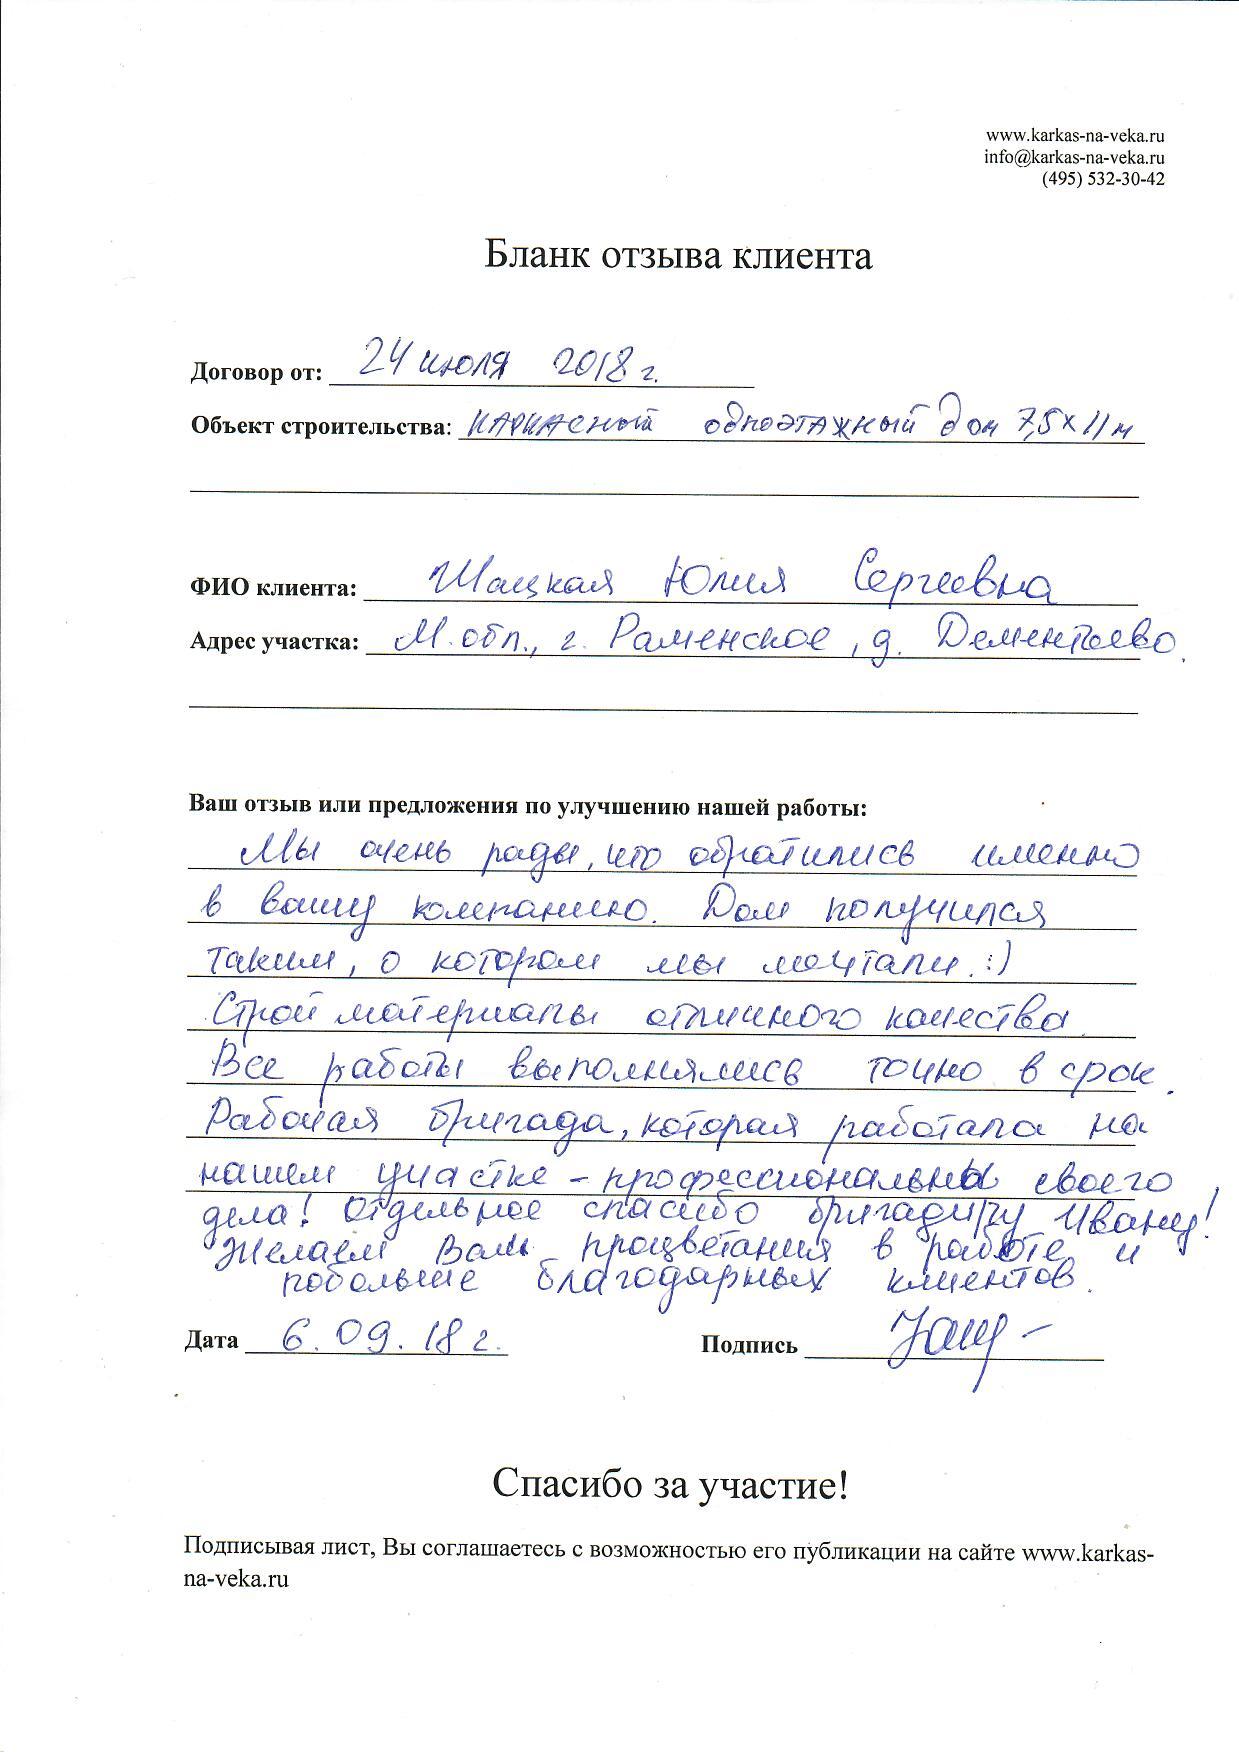 www.karkas-na-veka.ru
info@karkas-na-veka.ru
(495) 532-30-42
Бланк отзыва клиента
Договор от: 24 июля 2018 г.
Объект строительства: каркасный одноэтажный дом 7,5х11м
ФИО клиента: Шацкая Юлия Сергеевна
Адрес участка: М.обл., г. Раменское, д. Дементьево.
Ваш отзыв или предложения по улучшению нашей работы:
Мы очень рады, что обратились именно
в вашу компанию. Дом получился
таким, о котором мы мечтали. :)
Стройматериалы отличного качества.
Все работы выполнялись точно в срок.
Рабочая бригада, которая работала на
нашем участке - профессионалы своего
дела! Отдельное спасибо бригадиру Ивану!
Желаем Вам процветания в работе и
побольше благодарных клиентов.
Дата 6.09.18 г. Подпись
Спасибо за участие!
Подписывая лист, Вы соглашаетесь с возможностью его публикации на сайте www.karkas-
na-veka.ru